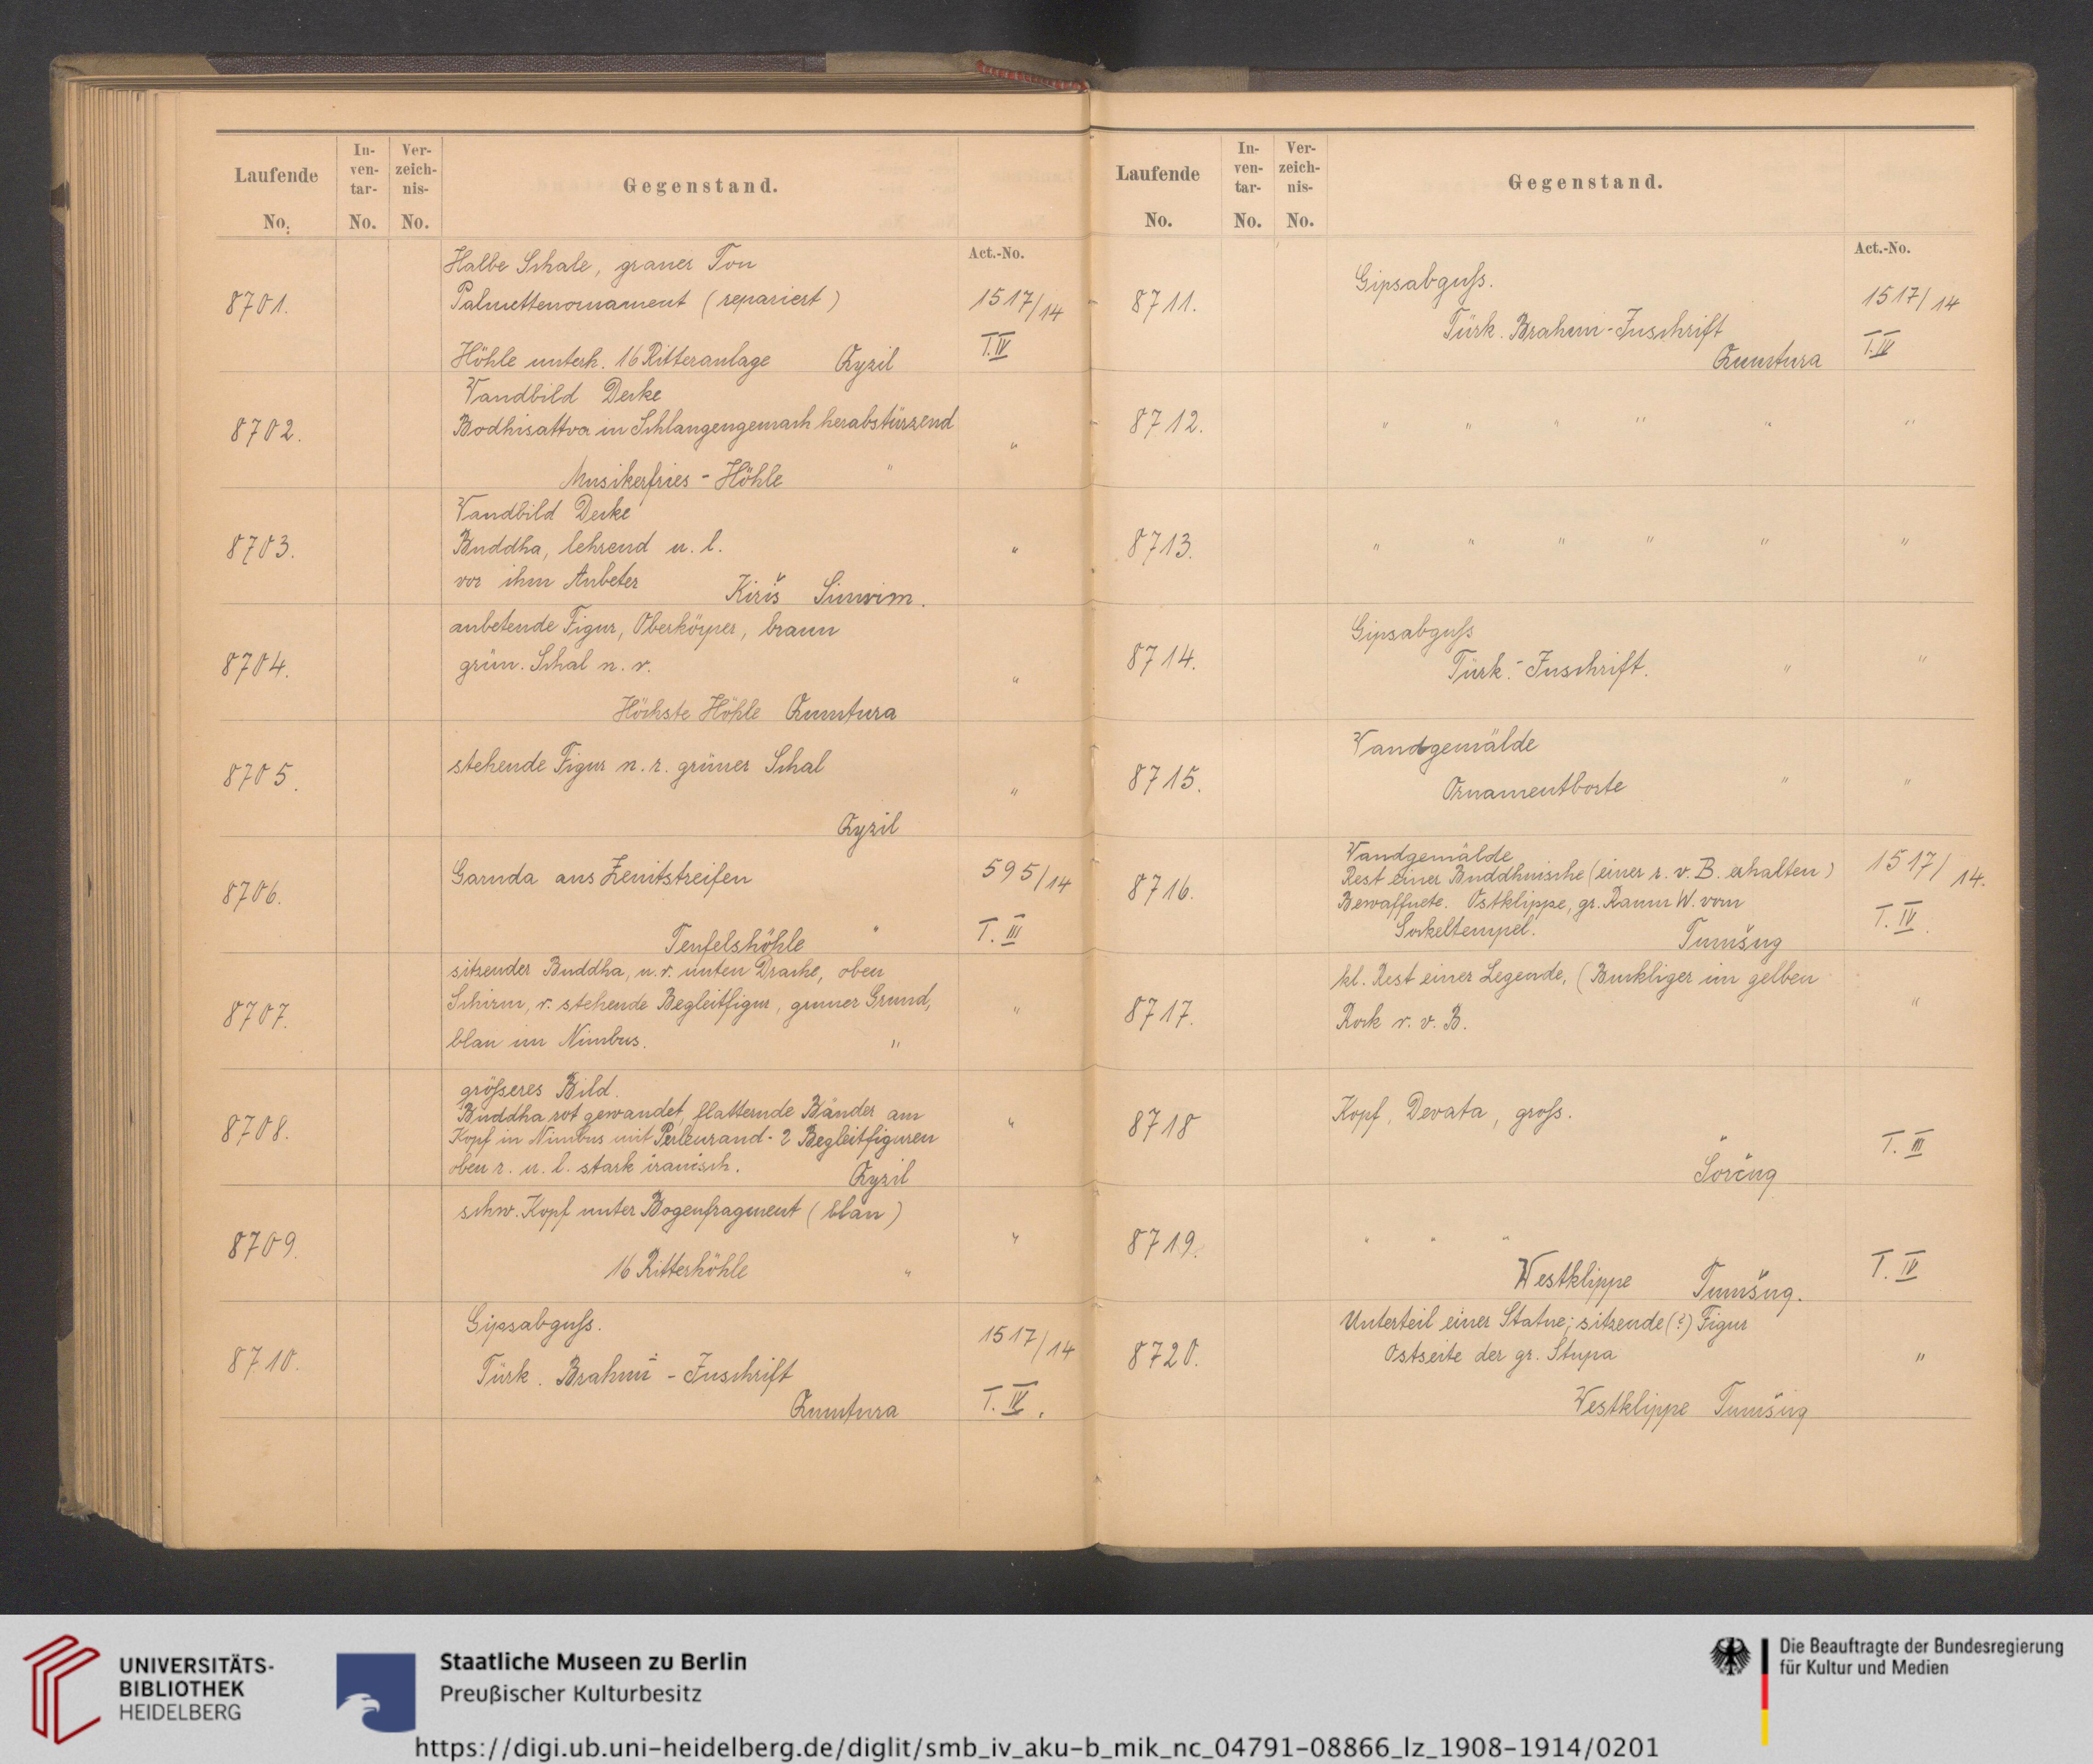 Laufende
No.
In-
ven-
tar-
No.
Ver-
zeich-
nis-
No.
Gegenstand.
Act.-No.
8701.
Halbe Schale, grauer Ton
Palmettenornament (repariert)
Höhle unterh. 16 Ritteranlage Qyzil
1517/14
T. IV
8702.
Wandbild Decke
Bodhisattva in Schlangengemach herabstürzend
Musikerfries - Höhle "
"
8703.
Wandbild Decke
Buddha, lehrend n. l.
vor ihm Anbeter Kiriš Simsim.
"
8704.
anbetende Figur, Oberkörper, braun
grün. Schal n. r.
Höchste Höhle Qumtura
"
8705.
stehende Figur n. r. grüner Schal
Qyzil
"
8706.
Garuda aus Zenitstreifen
Teufelshöhle "
595/14
T. III
8707.
sitzender Buddha, n. r. unten Drache, oben
Schirm, r. stehende Begleitfigur, grüner Grund,
blau im Nimbus. "
"
8708.
größeres Bild.
Buddha rot gewandet, flatternde Bänder am
Kopf in Nimbus mit Perlenrand - 2 Begleitfiguren
oben r. u. l. stark iranisch. Qyzil
"
8709.
schw. Kopf unter Bogenfragment (blau)
16 Ritterhöhle "
"
8710.
Gipsabguß.
Türk. Brahmi - Inschrift
Qumtura
1517/14
T. IV.
Laufende
No.
In-
ven-
tar-
No.
Ver-
zeich-
nis-
No.
Gegenstand.
Act.-No.
8711.
Gipsabguß.
Türk. Brahmi - Inschrift
Qumtura
1517/14
T. IV
8712.
" " " " " "
8713.
" " " " " "
8714.
Gipsabguß
Türk. - Inschrift. " "
8715.
Wandgemälde
Ornamentborte " "
8716.
Wandgemälde
Rest einer Buddhanische (einer r. v. B. erhalten)
Bewaffnete. Ostklippe, gr. Raum W. vom
Sockeltempel. Tumšuq
1517/14.
T. IV.
8717.
kl. Rest einer Legende, (Buckliger im gelben
Rock r. v. B.
"
8718
Kopf, Devata, groß.
"
Šorčuq
T. III
8719.
" " "
Westklippe Tumšuq.
T. IV
8720.
Unterteil einer Statue; sitzende (?) Figur
Ostseite der gr. Stupa
Westklippe Tumšuq
"
UNIVERSITÄTS-
BIBLIOTHEK
HEIDELBERG
Staatliche Museen zu Berlin
Preußischer Kulturbesitz
Die Beauftragte der Bundesregierung
für Kultur und Medien
https://digi.ub.uni-heidelberg.de/diglit/smb_iv_aku-b_mik_nc_04791-08866_lz_1908-1914/0201